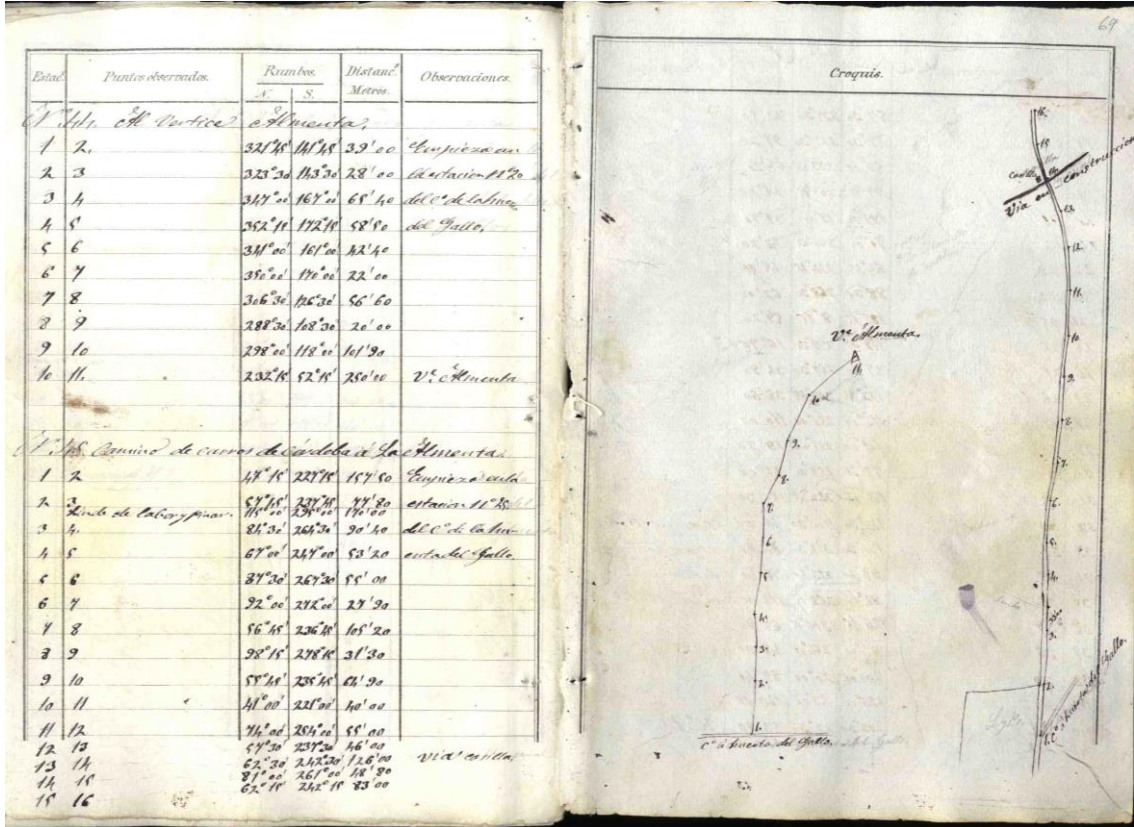 Estac. Puntos observados. Rumbos. Distanc.ª Observaciones.
N. S. Metros.
Nº 44. Al Vertice Almenta.
1 2. 321°45' 141°45' 39'00 Empieza en
2 3 323°30 143°30 28'00 la estacion nº 20
3 4 347°00' 167°00' 65'40 del Cº de la huerta
4 5 352°15' 172°15' 58'50 del Gallo.
5 6 341°00' 161°00' 42'40
6 7 350°00' 170°00' 22'00
7 8 306°30' 126°30' 56'60
8 9 288°30' 108°30' 20'00
9 10 298°00' 118°00' 101'90
10 11. 232°15' 52°15' 250'00 Vº. Almenta
Nº 45. Camino de carros de Córdoba á La Almenta.
1 2 47°15' 227°15' 157'50 Empieza en la
2 3 57°45' 237°45' 77'80 estacion nº 25
Linde de labor y pinar. 115°00' 295°00' 170'00
3 4. 84°30' 264°30' 90'40 del Cº de la hu-
4 5 67°00' 247°00' 53'20 erta del Gallo.
5 6 87°30' 267°30' 55'00
6 7 92°00' 272°00' 27'90
7 8 56°45' 236°45' 105'20
8 9 98°15' 278°15' 31'30
9 10 55°45' 235°45' 64'90
10 11 41°00' 221°00' 40'00
11 12 74°00' 254°00' 55'00
12 13 57°30' 237°30' 46'00
13 14 62°30' 242°30' 126'00 via casilla
14 15 81°00' 261°00' 48'80
15 16 62°15' 242°15' 83'00
69
Croquis.
16.
15
Casilla
14.
Via en construccion
13.
12.
11.
10
9.
8
7.
6.
5.
4.
3.
2.
1. Cº á huerta del Gallo.
Vº. Almenta.
11.
10
9.
8.
7.
6.
5
4.
3.
2.
1.
Cº á huerta del Gallo.